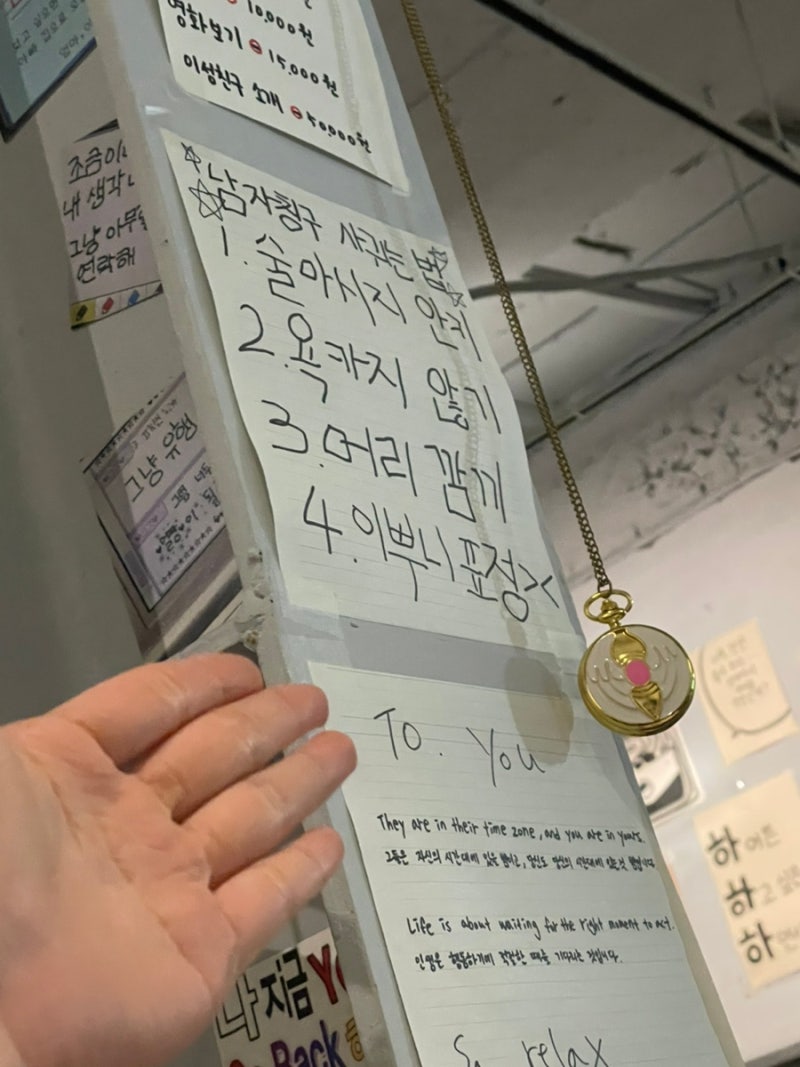 10,000원
영화보기 15,000원
이성친구 소개 50,000원
조금이
내 생각
그냥 아무
연락해
☆남자친구 사귀는 법☆
1. 술마시지 안키
2. 욕카지 않기
3. 머리 깜끼
4. 이뿌니 표정><
그냥 유행
To. You
They are in their time zone, and you are in yours.
그들은 자신의 시간대에 있을 뿐이고, 당신도 당신의 시간대에 있는것 뿐입니다
Life is about waiting for the right moment to act.
인생은 행동하기에 적절한 때를 기다리는 것입니다.
So relax
나 지금
Back
하 여튼
하고 싶은
하